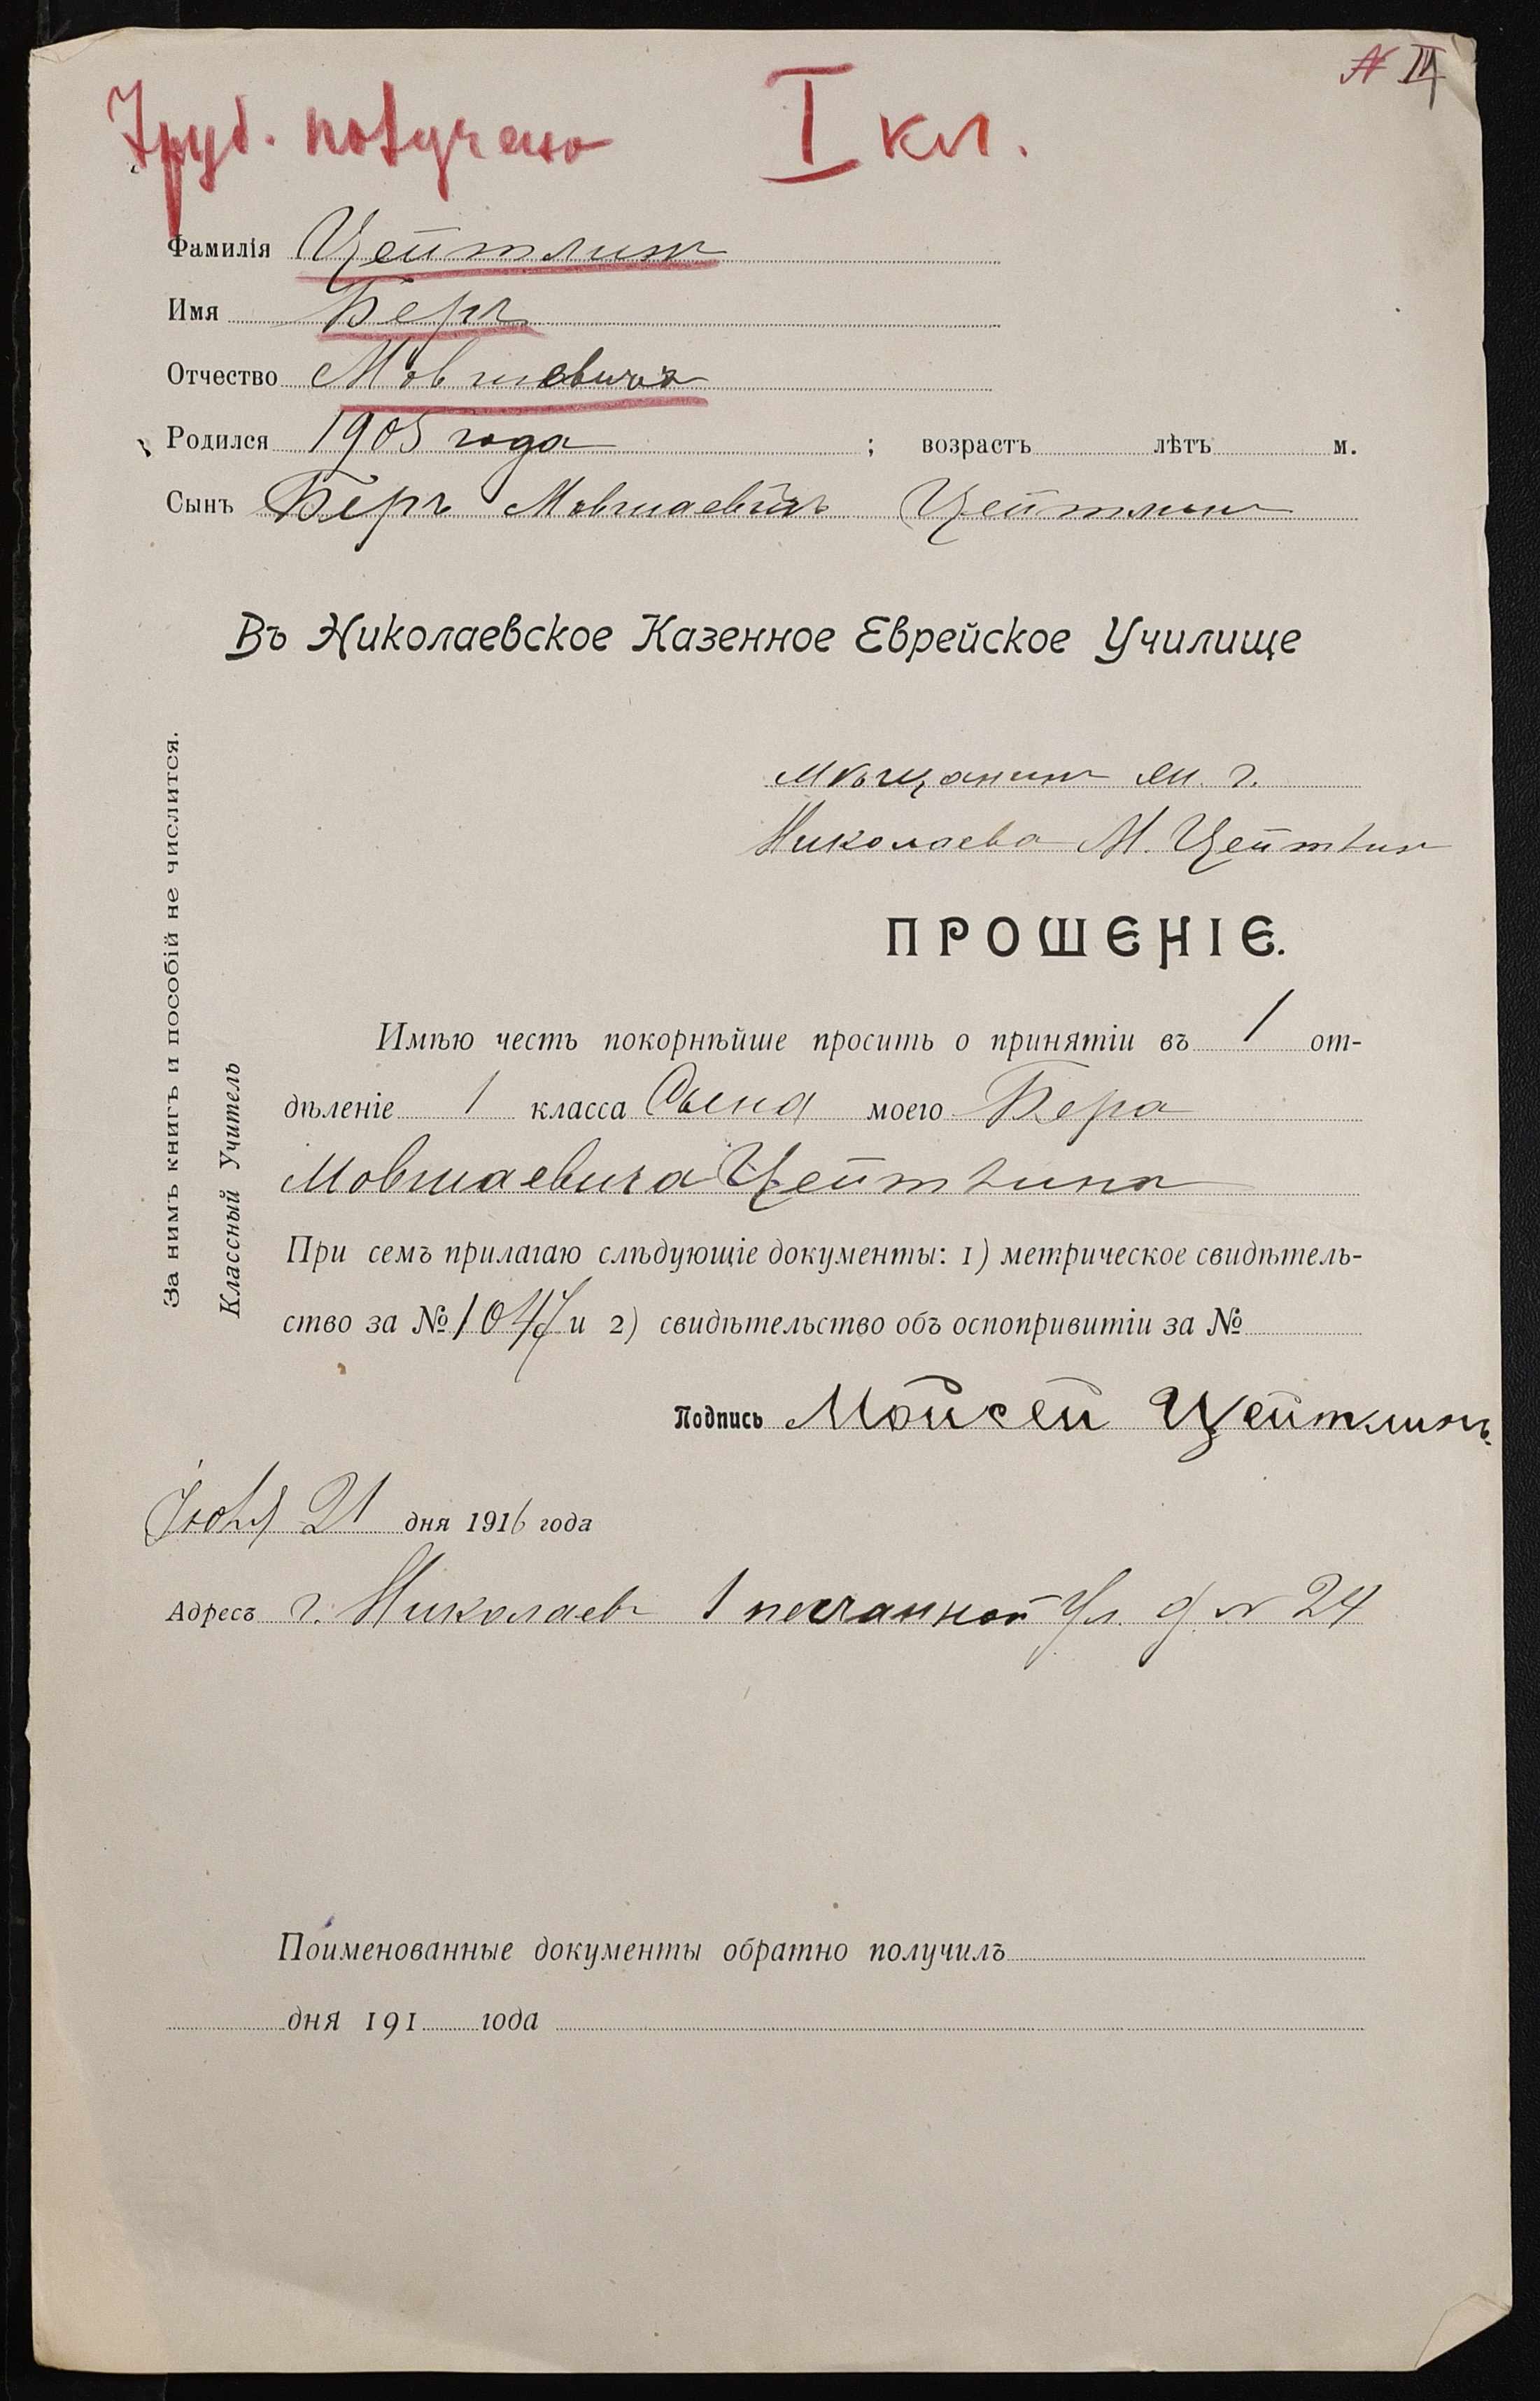 I кл.
Фамилія Цейтлин
Имя Беръ
Отчество Мовшевичъ
Родился 1905 года ; возрастъ лѣтъ м.
Сынъ Беръ Мовшаевичъ Цейтлин
Въ Николаевское Казенное Еврейское Училище
Мѣщанин г.
Николаева М. Цейтлин
ПРОШЕНІЕ.
Имѣю честь покорнѣйше просить о принятіи въ 1 от-
дѣленіе 1 класса Сына моего Бера
Мовшаевича Цейтлина
При семъ прилагаю слѣдующіе документы: 1) метрическое свидѣтель-
ство за № 1047 и 2) свидѣтельство объ оспопривитіи за №
Подпись Мойсей Цейтлинъ.
Іюля 21 дня 1916 года
Адресъ г. Николаев 1 песчанной ул. д № 24
Поименованные документы обратно получилъ
дня 191 года
За нимъ книгъ и пособій не числится.
Классный Учитель